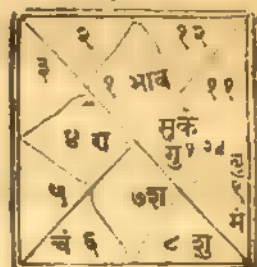 २ १२
३ १ भाव ११
४ रा सूके
गु १०
५ ७ श
मं
चं ६ ८ शु